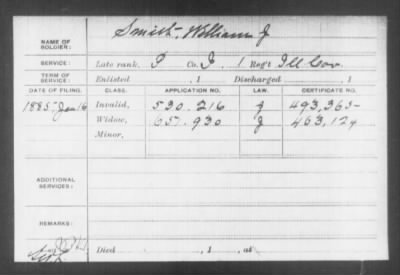 NAME OF SOLDIER: Smith, William J
SERVICE: Late rank, P Co. I, 1 Reg't Ill Cav.
TERM OF SERVICE: Enlisted , 1 Discharged , 1
DATE OF FILING. CLASS. APPLICATION NO. LAW. CERTIFICATE NO.
1885 Jan 16 Invalid, 530.216 J 493,365
Widow, 657.930 J 463,124
Minor,
ADDITIONAL SERVICES:
REMARKS:
Died , 1 , at